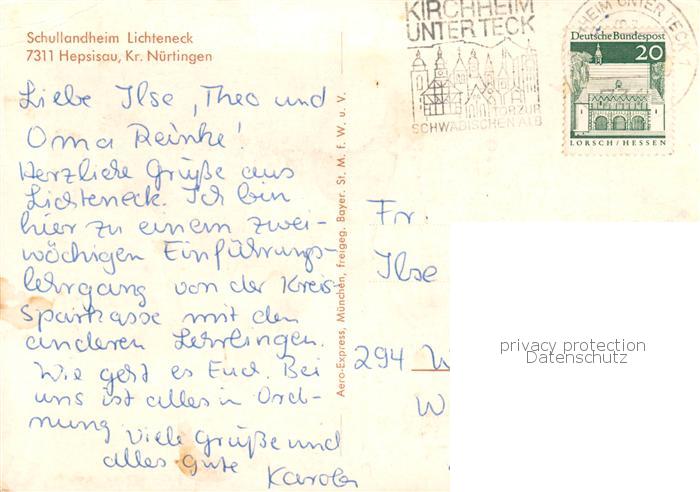 Schullandheim Lichteneck
7311 Hepsisau, Kr. Nürtingen
Liebe Ilse, Theo und
Oma Reinke!
Herzliche Grüße aus
Lichteneck. Ich bin
hier zu einem zwei-
wöchigen Einführungs-
lehrgang von der Kreis-
sparkasse mit den
anderen Lehrlingen.
Wie geht es Euch. Bei
uns ist alles in Ord-
nung
Viele Grüße und
alles gute
Karola
Aero-Express, München, freigeg. Bayer. St. M. F. W. u. V.
KIRCHHEIM
UNTER TECK
TOR ZUR
SCHWÄBISCHEN ALB
HEIM UNTER TECK
Deutsche Bundespost
20
LORSCH/HESSEN
Fr.
Ilse
294 W
W
privacy protection
Datenschutz